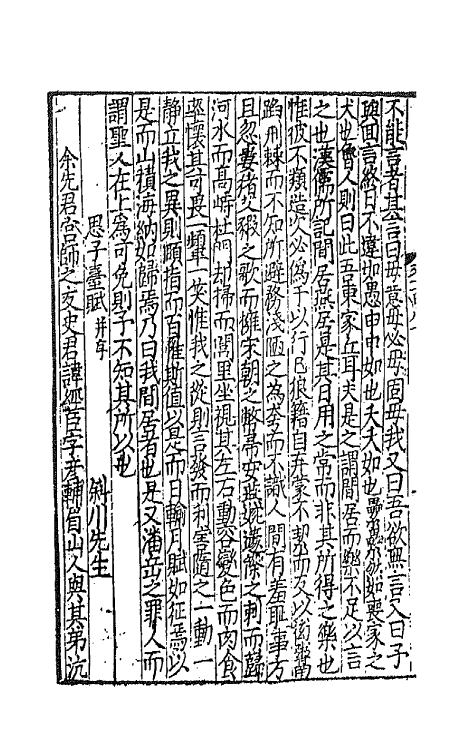 不能言者其言曰毋意毋必毋固毋我又曰吾欲無言又曰予
與回言終日不違如愚申申如也夭夭如也纍纍然如喪家之
犬也魯人則曰此吾東家丘耳夫是之謂閒居而樂不足以言
之也漢儒所記閒居燕居是其日用之常而非其所得之樂也
惟彼不類造父必為子以行已狼籍自弃蒙不潔而
蹈荆棘而不知所避務淺陋之為夸而不識人間有羞恥事方
且忽數
河水而高崎杜門却掃而閭里坐視其左右動容變色而肉食
率懷其可畏一嚬一笑惟我之從則言發而利害隨之一動一
静立我之異則頤指而百罹斯值以是而日輸月賦如征焉以
是而山積海納如歸焉乃曰我閒居者也是又潘岳之罪人而
謂聖人在上為可免則予不知其所以也
思子臺賦并序
斜川先生
余先君宮師之友史君諱經臣字彦輔眉山人與其弟沆